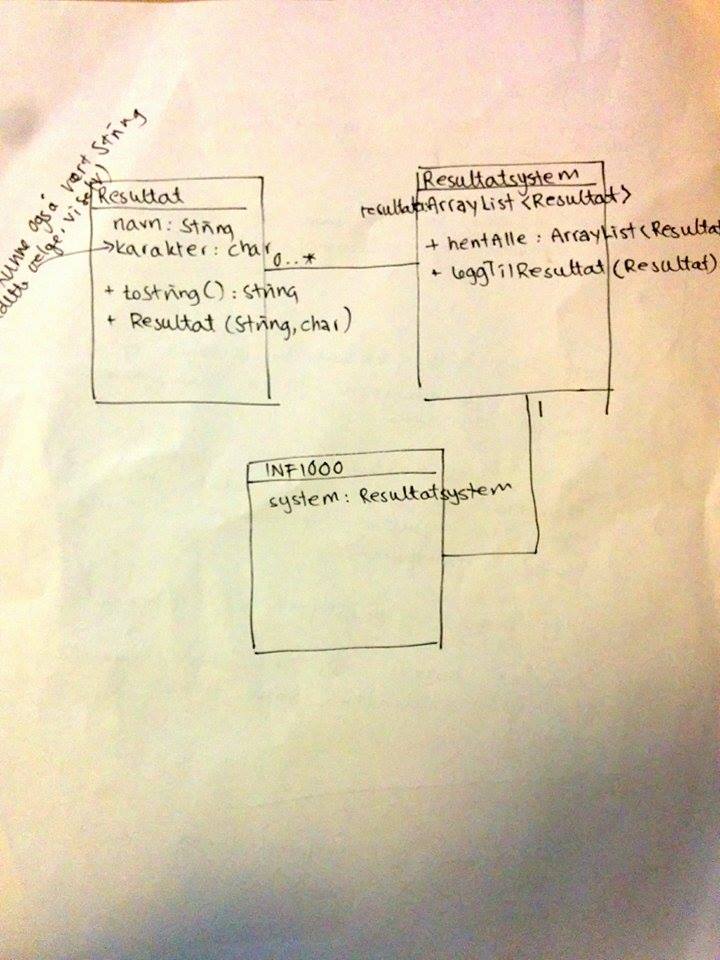 kunne også vært String
dette velger vi selv)
Resultat
navn: String
karakter: char
+ toString(): String
+ Resultat (String, char)
0..*
Resultatsystem
ArrayList <Resultat>
+ hentAlle : ArrayList<Resultat
+ leggTilResultat (Resultat)
1
INF1000
system: Resultatsystem